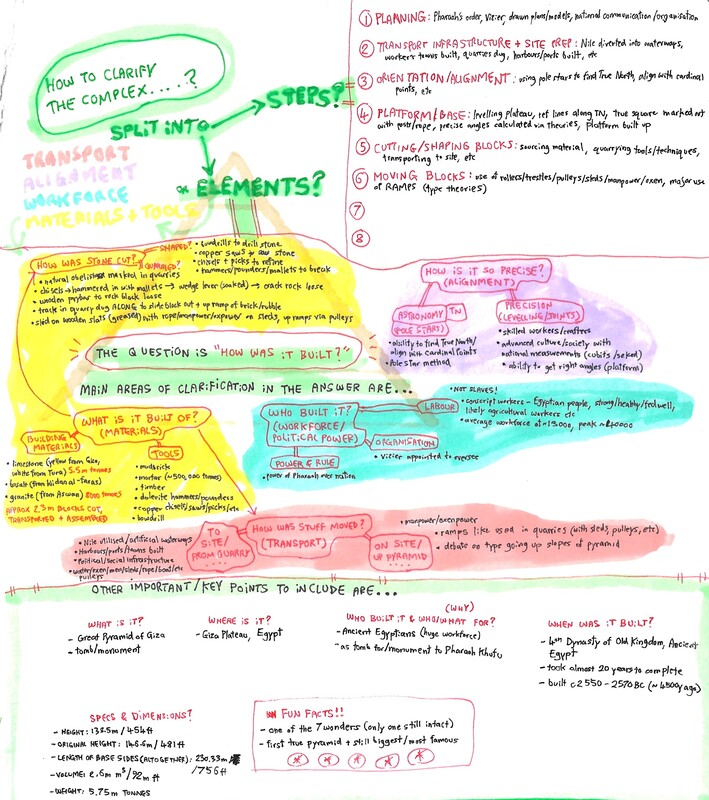 HOW TO CLARIFY
THE COMPLEX....?
SPLIT INTO
STEPS?
OR ELEMENTS?
TRANSPORT
ALIGNMENT
WORKFORCE
MATERIALS + TOOLS
① PLANNING: Pharaoh's order, Vizier, drawn plans/models, national communication/organisation
② TRANSPORT INFRASTRUCTURE + SITE PREP: Nile diverted into waterways,
workers towns built, quarries dug, harbours/ports built, etc
③ ORIENTATION/ALIGNMENT: using pole stars to find True North, align with cardinal
points, etc
④ PLATFORM/BASE: levelling plateau, ref lines along TN, true square marked out
with posts/rope, precise angles calculated via theories, platform built up
⑤ CUTTING/SHAPING BLOCKS: sourcing material, quarrying tools/techniques,
transporting to site, etc
⑥ MOVING BLOCKS: use of rollers/trestles/pulleys/sleds/manpower/oxen, major use
of RAMPS (type theories)
⑦
⑧
HOW WAS STONE CUT?
SHAPED?
• bowdrills to drill stone
• copper saws to saw stone
• chisels + picks to refine
• hammers/pounders/mallets to break
QUARRIED?
• natural obelisks marked in quarries
• chisels hammered in with mallets → wedge lever (soaked) → crack rock loose
• wooden prybar to rock block loose
• track in quarry dug ALONG to slide block out + up ramp of brick/rubble
• sled on wooden slats (greased) with rope/manpower/oxpower on sleds, up ramps via pulleys
HOW IS IT SO PRECISE?
(ALIGNMENT)
ASTRONOMY TN
(POLE STAR)
• ability to find True North/
align with Cardinal Points
• Pole Star method
PRECISION
(LEVELLING/JOINTS)
• skilled workers/crafters
• advanced culture/society with
national measurements (cubits/seked)
• ability to get right angles (platform)
THE QUESTION IS "HOW WAS IT BUILT?"
MAIN AREAS OF CLARIFICATION IN THE ANSWER ARE...
WHAT IS IT BUILT OF?
(MATERIALS)
BUILDING
MATERIALS
• limestone (yellow from Giza,
white from Tura) 5.5m tonnes
• basalt (from Widan al-Faras)
• granite (from Aswan) 8000 tonnes
APPROX 2.3m BLOCKS CUT,
TRANSPORTED + ASSEMBLED
TOOLS
• mudbrick
• mortar (~500,000 tonnes)
• timber
• dolerite hammers/pounders
• copper chisels/saws/picks/etc
• bowdrill
WHO BUILT IT?
(WORKFORCE/
POLITICAL POWER)
LABOUR
• NOT SLAVES!
• conscript workers - Egyptian people, strong/healthy/fed well,
likely agricultural workers etc
• average workforce of ~13,000, peak ~40000
ORGANISATION
• Vizier appointed to oversee
POWER & RULE
• power of Pharaoh over nation
HOW WAS STUFF MOVED?
(TRANSPORT)
TO
SITE/
FROM QUARRY
....
• Nile utilised/artificial waterways
• Harbours/ports/towns built
• Political/social infrastructure
• water/oxen/men/sleds/rope/boat/etc
pulleys
ON SITE/
UP PYRAMID
....
• manpower/oxenpower
• ramps like used in quarries (with sleds, pulleys, etc)
• debate on type going up slopes of pyramid
OTHER IMPORTANT/KEY POINTS TO INCLUDE ARE...
WHAT IS IT?
- Great Pyramid of Giza
- tomb/monument
WHERE IS IT?
- Giza Plateau, Egypt
(WHY)
WHO BUILT IT & WHO/WHAT FOR?
- Ancient Egyptians (huge workforce)
- as tomb for/monument to Pharaoh Khufu
WHEN WAS IT BUILT?
- 4th Dynasty of Old Kingdom, Ancient
Egypt
- took almost 20 years to complete
- built c2550-2570BC (~4500y ago)
SPECS & DIMENSIONS?
- HEIGHT: 138.5m/454ft
- ORIGINAL HEIGHT: 146.6m/481ft
- LENGTH OF BASE SIDES (ALTOGETHER): 230.33m
/756ft
- VOLUME: 2.6m m³/92m ft
- WEIGHT: 5.75m TONNES
FUN FACTS!!
- one of the 7 wonders (only one still intact)
- first true pyramid + still biggest/most famous